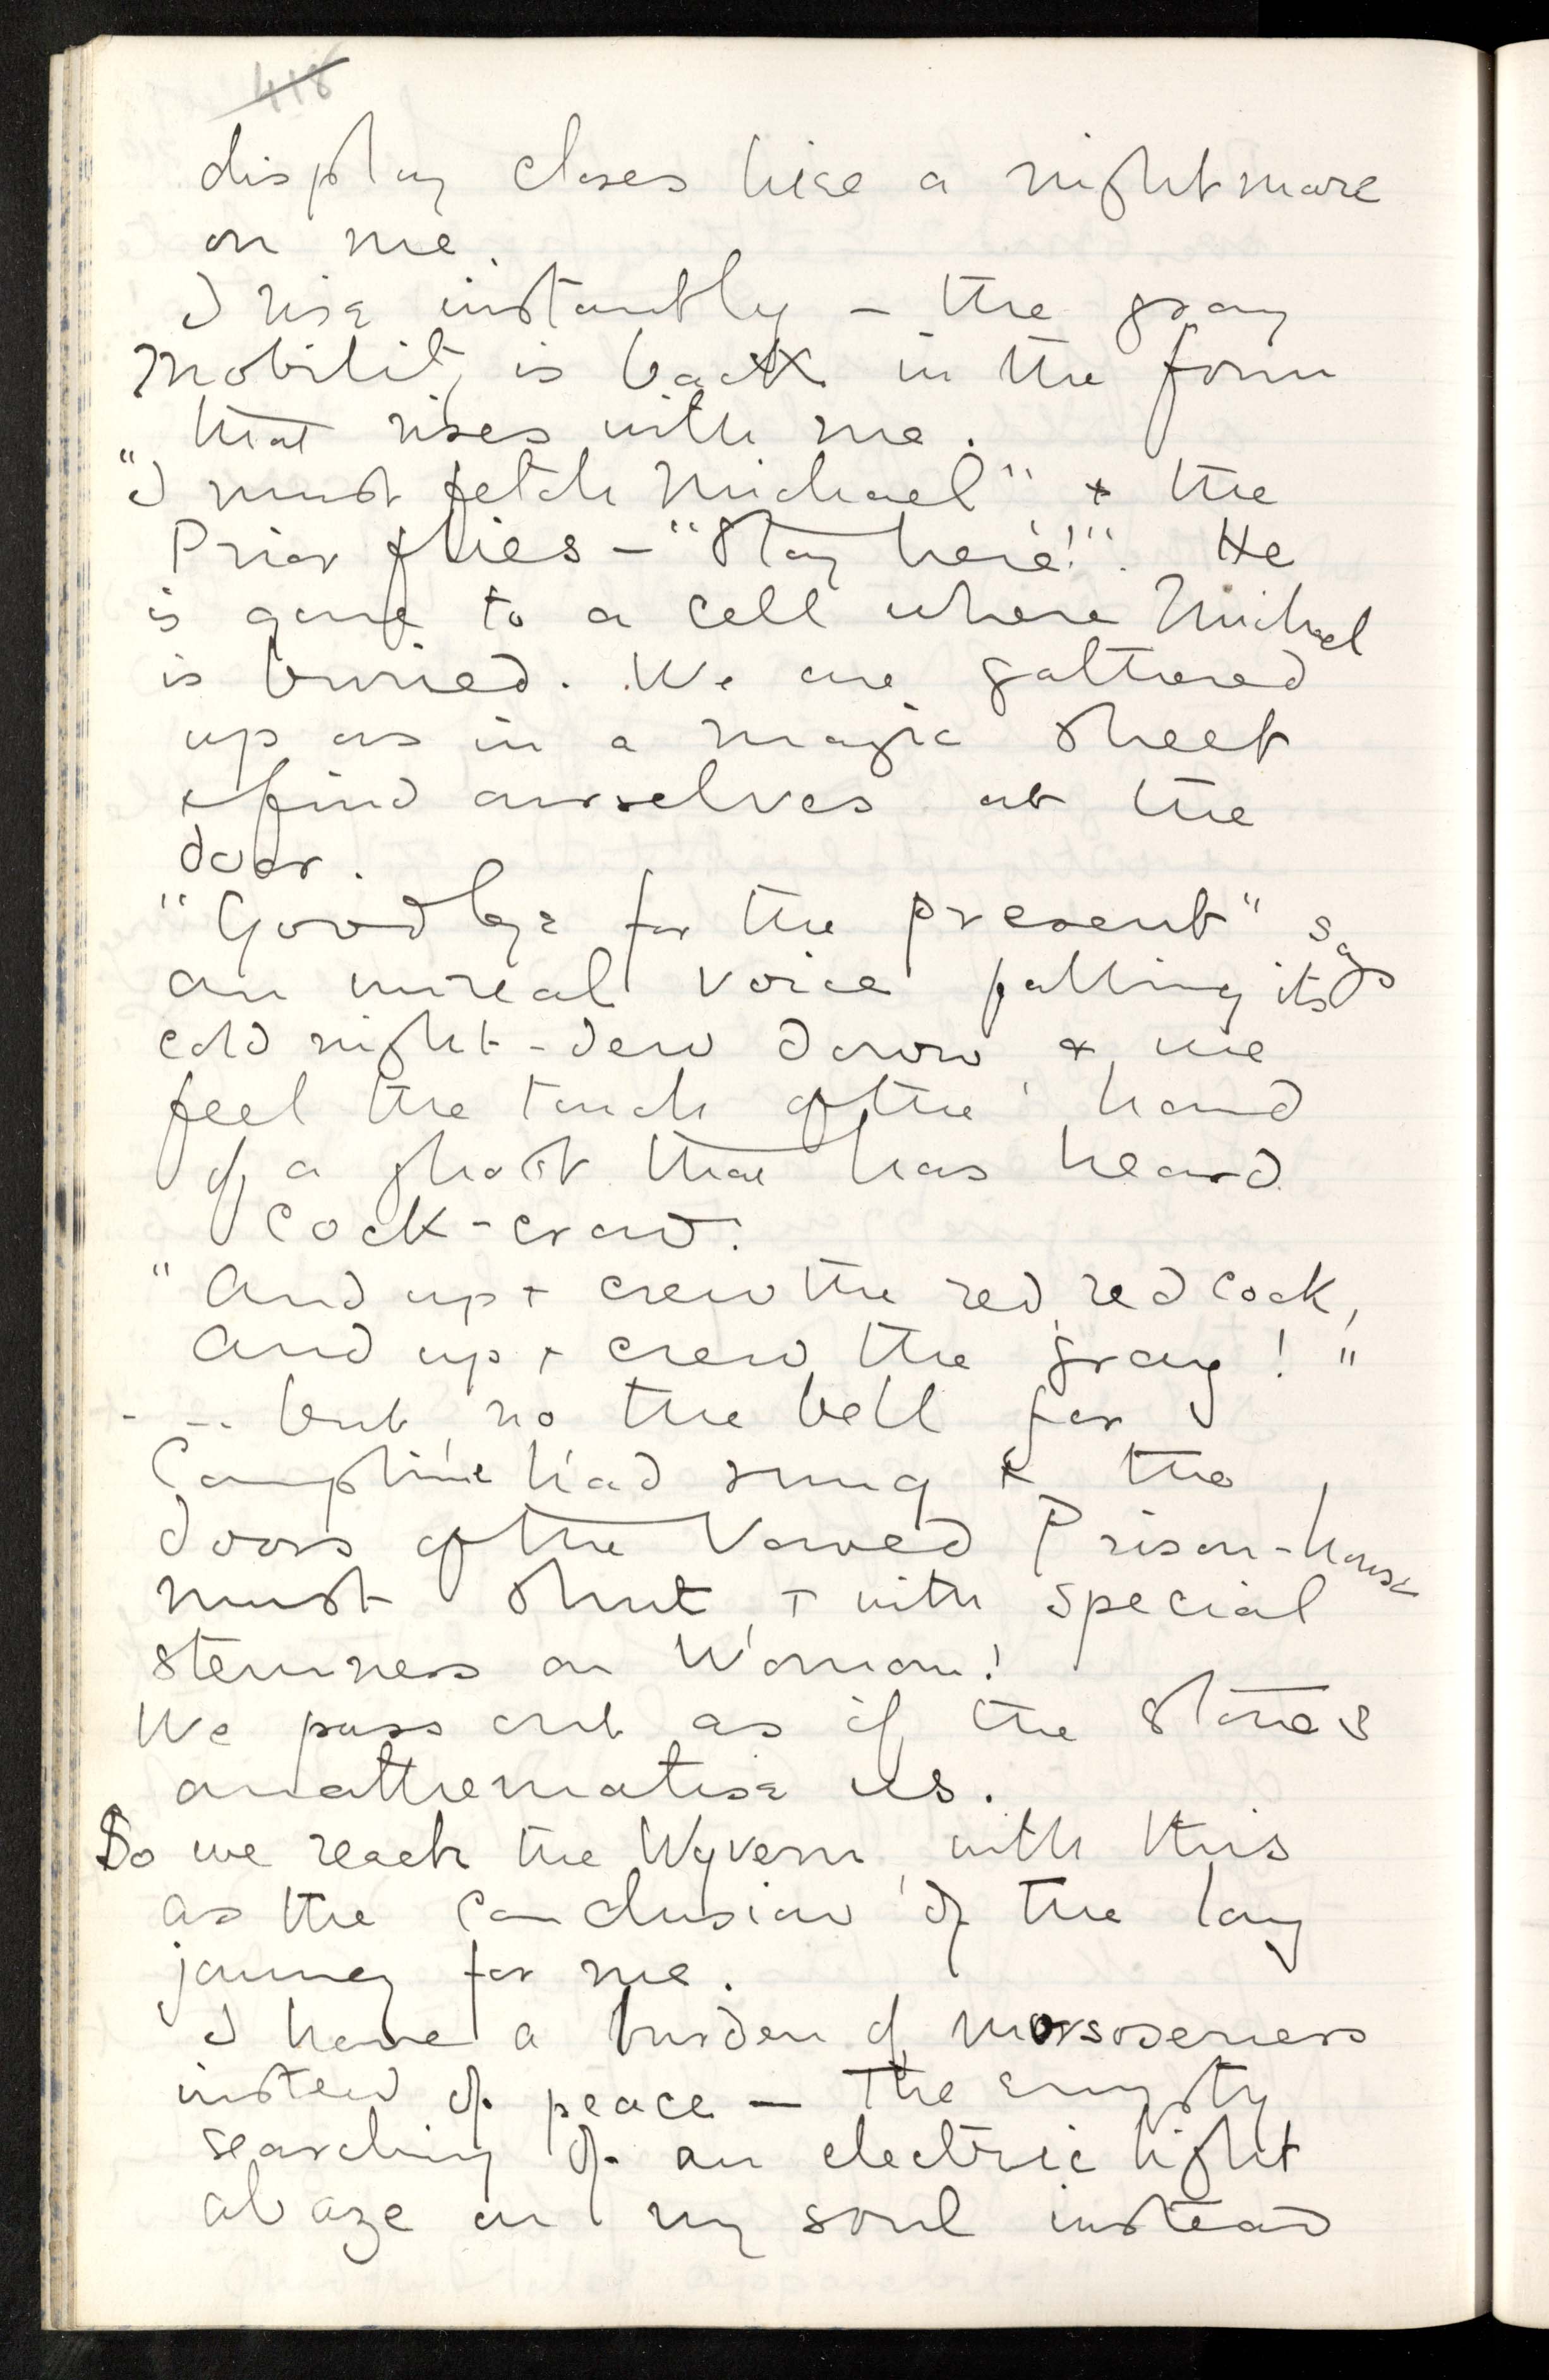 418
display closes like a nightmare
on me.
I rise instantly – the gray
mobility is back in the form
that rises with me.
"I must fetch Michael" & the
Prior flies – "Stay here!". He
is gone to a cell where Michael
is buried. We are gathered
up as in a magic sheet
& find ourselves at the
door.
"Goodbye for the present" says
an unreal voice falling its
cold night-dew down & we
feel the touch of the hand
of a ghost that has heard
cock-crow.
"And up & crew the red, red cock,
And up & crew the gray!"
- -- but no the bell for
Compline had rung & the
doors of the Vowed Prison-house
must shut & with special
sternness on Woman!
We pass out as if the stones
anathematise us.
So we reach the Wyvern with this
as the conclusion of the long
journey for me.
I have a burden of moroseness
instead of peace – The empty
searching of an electric light
abaze on my soul instead